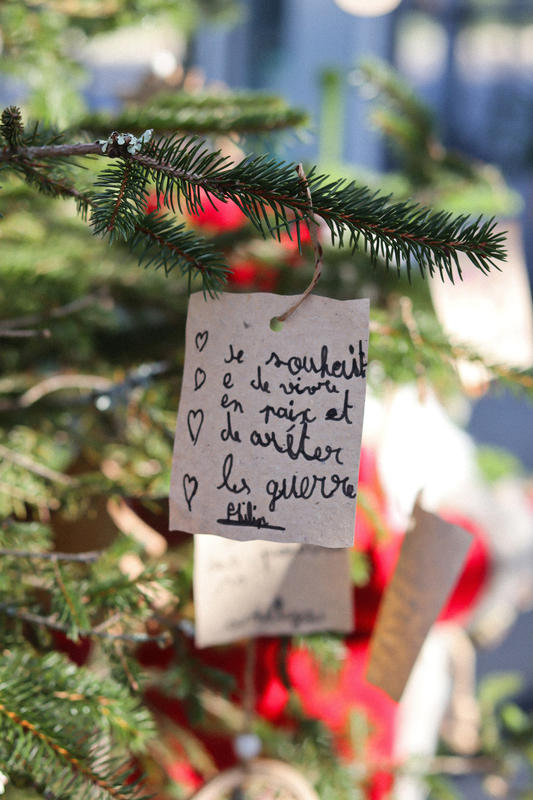 je souhait
e de vivre
en paix et
de arêter
les guerre
Philip